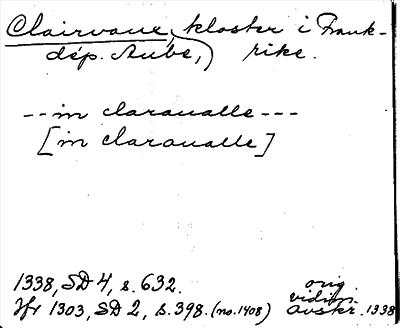 Clairvaux, kloster i Frank-
dép. Aube,) rike.
--in claraualle---
[in claraualle]
1338, SD 4, s. 632. orig.
Jfr 1303, SD 2, s. 398. (no. 1408) vidim. avskr. 1338